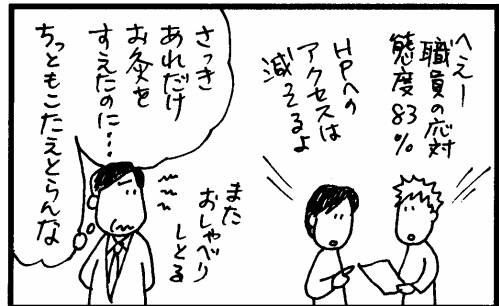 へえー
職員の応対
態度83%
HPへの
アクセスは
減ってるよ
また
おしゃべり
しとる
さっき
あれだけ
お灸を
すえたのに…
ちっともこたえとらんな